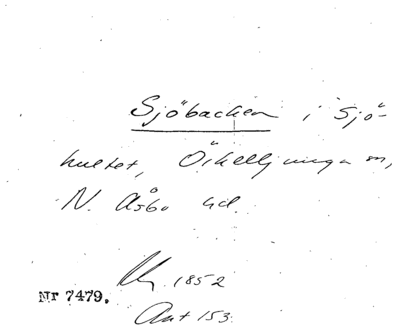 Sjöbacken i Sjö-
hultet, Örkelljunga sn,
N. Åsbo hd.
1852
Nr 7479.
Akt 153.